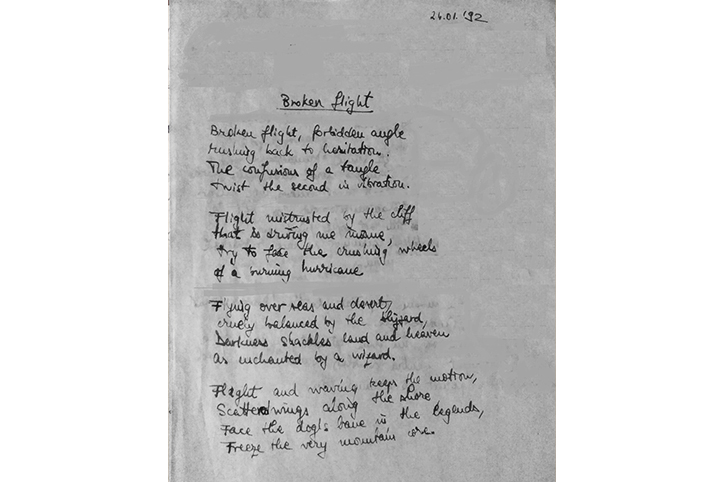 24.01.'92
Broken flight
Broken flight, forbidden angle
rushing back to hesitation.
The confusions of a tangle
twist the second in vibration.
Flight mistrusted by the cliff
that is driving me insane,
try to face the crushing wheels
of a burning hurricane
Flying over seas and desert,
cruely balanced by the blizzard,
Darkness shackles land and heaven
as enchanted by a wizard.
Flight and waving keeps the motion,
Scattered wings along the shore
Face the dogs bane in the legends,
Freeze the very mountain core.